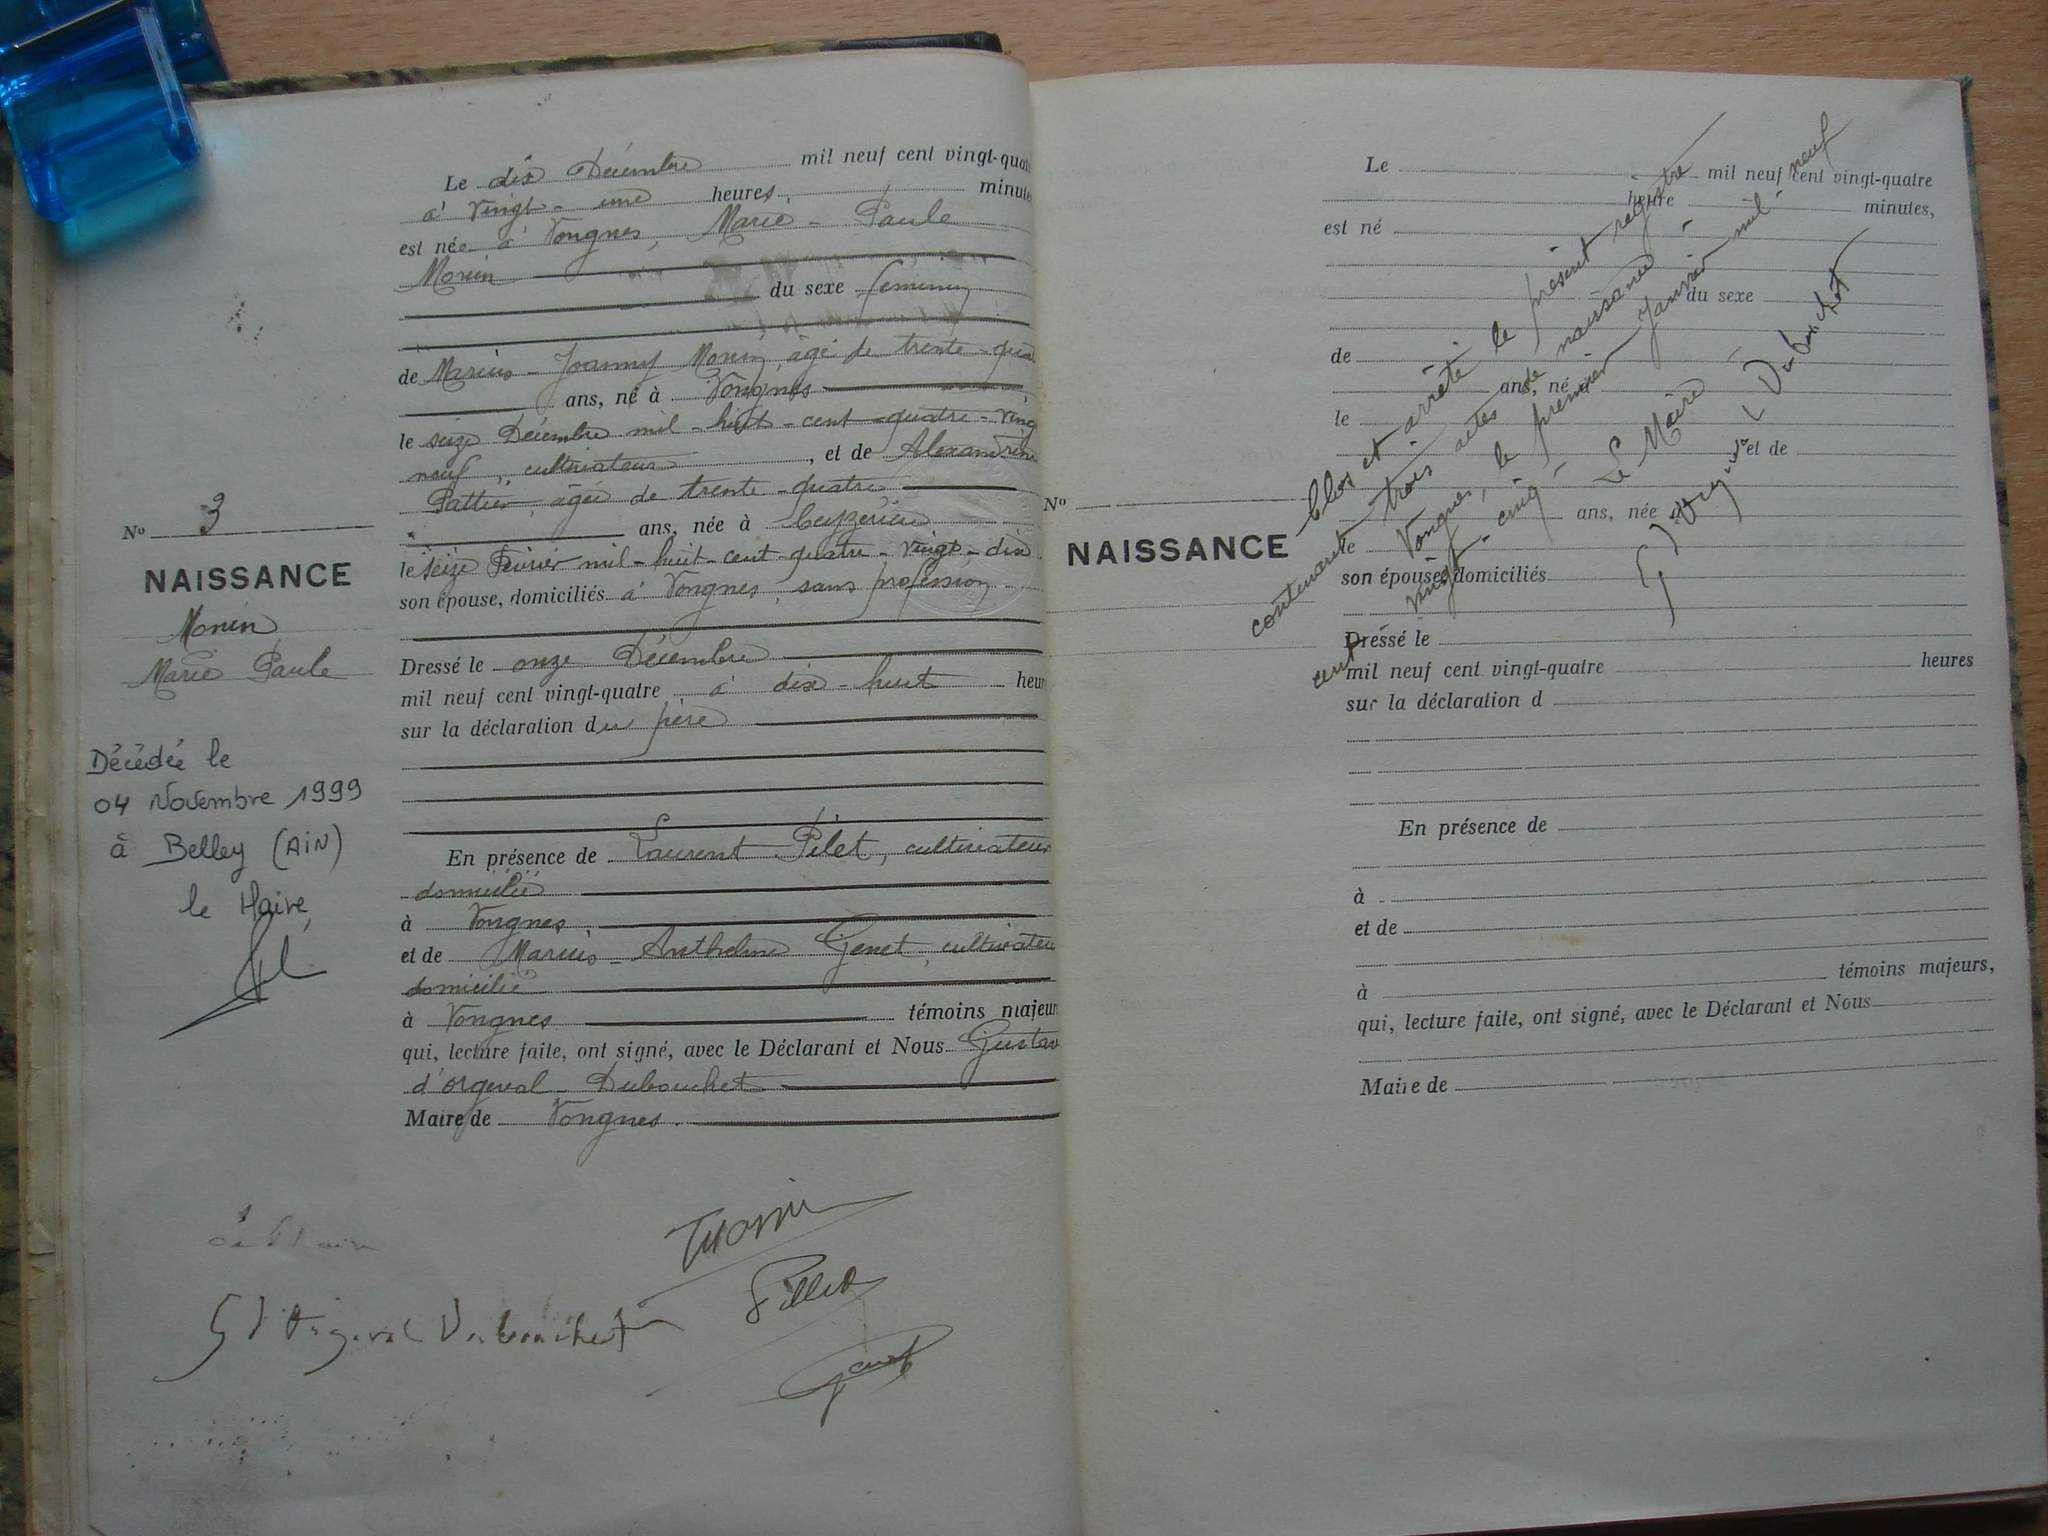 N° 3
NAISSANCE
Monin
Marie Paule
Décédée le
04 Novembre 1999
à Belley (AIN)
le Maire
Le dix Décembre mil neuf cent vingt-quatr
à vingt-une heures, minutes
est née à Vongnes, Marie-Paule
Monin
du sexe féminin
de Marius-Joanny Monin, âgé de trente-quat
ans, né à Vongnes
le seize Décembre mil-huit-cent-quatre-ving
neuf, cultivateur, et de Alexandrine
Pattier, âgée de trente-quatre
ans, née à Ceyzérieu
le seize Février mil-huit-cent-quatre-vingt-dix
son épouse, domiciliés à Vongnes, sans profession
Dressé le onze Décembre
mil neuf cent vingt-quatre à dix-huit heur
sur la déclaration du père
En présence de Laurent Pilet, cultivateur
domicilié
à Vongnes
et de Marius-Anthelme Genet, cultivateu
domicilié
à Vongnes témoins majeur
qui, lecture faite, ont signé, avec le Déclarant et Nous Gustav
d'orgeval-Dubouchet
Maire de Vongnes.
Monin
Pillet
G d'Orgeval Dubouchet
Genet
N°
NAISSANCE
Le mil neuf cent vingt-quatre
heure minutes,
est né
du sexe
de
ans, né à
le
et de
ans, née à
le
son épouse, domiciliés
Dressé le
mil neuf cent vingt-quatre heures
sur la déclaration d
En présence de
à
et de
à témoins majeurs,
qui, lecture faite, ont signé, avec le Déclarant et Nous
Maire de
Clos et arrêté le présent registre
contenant trois actes de naissance
Vongnes, le premier Janvier mil-neuf
cent vingt-cinq-
Le Maire
G d'Orgeval Dubouchet